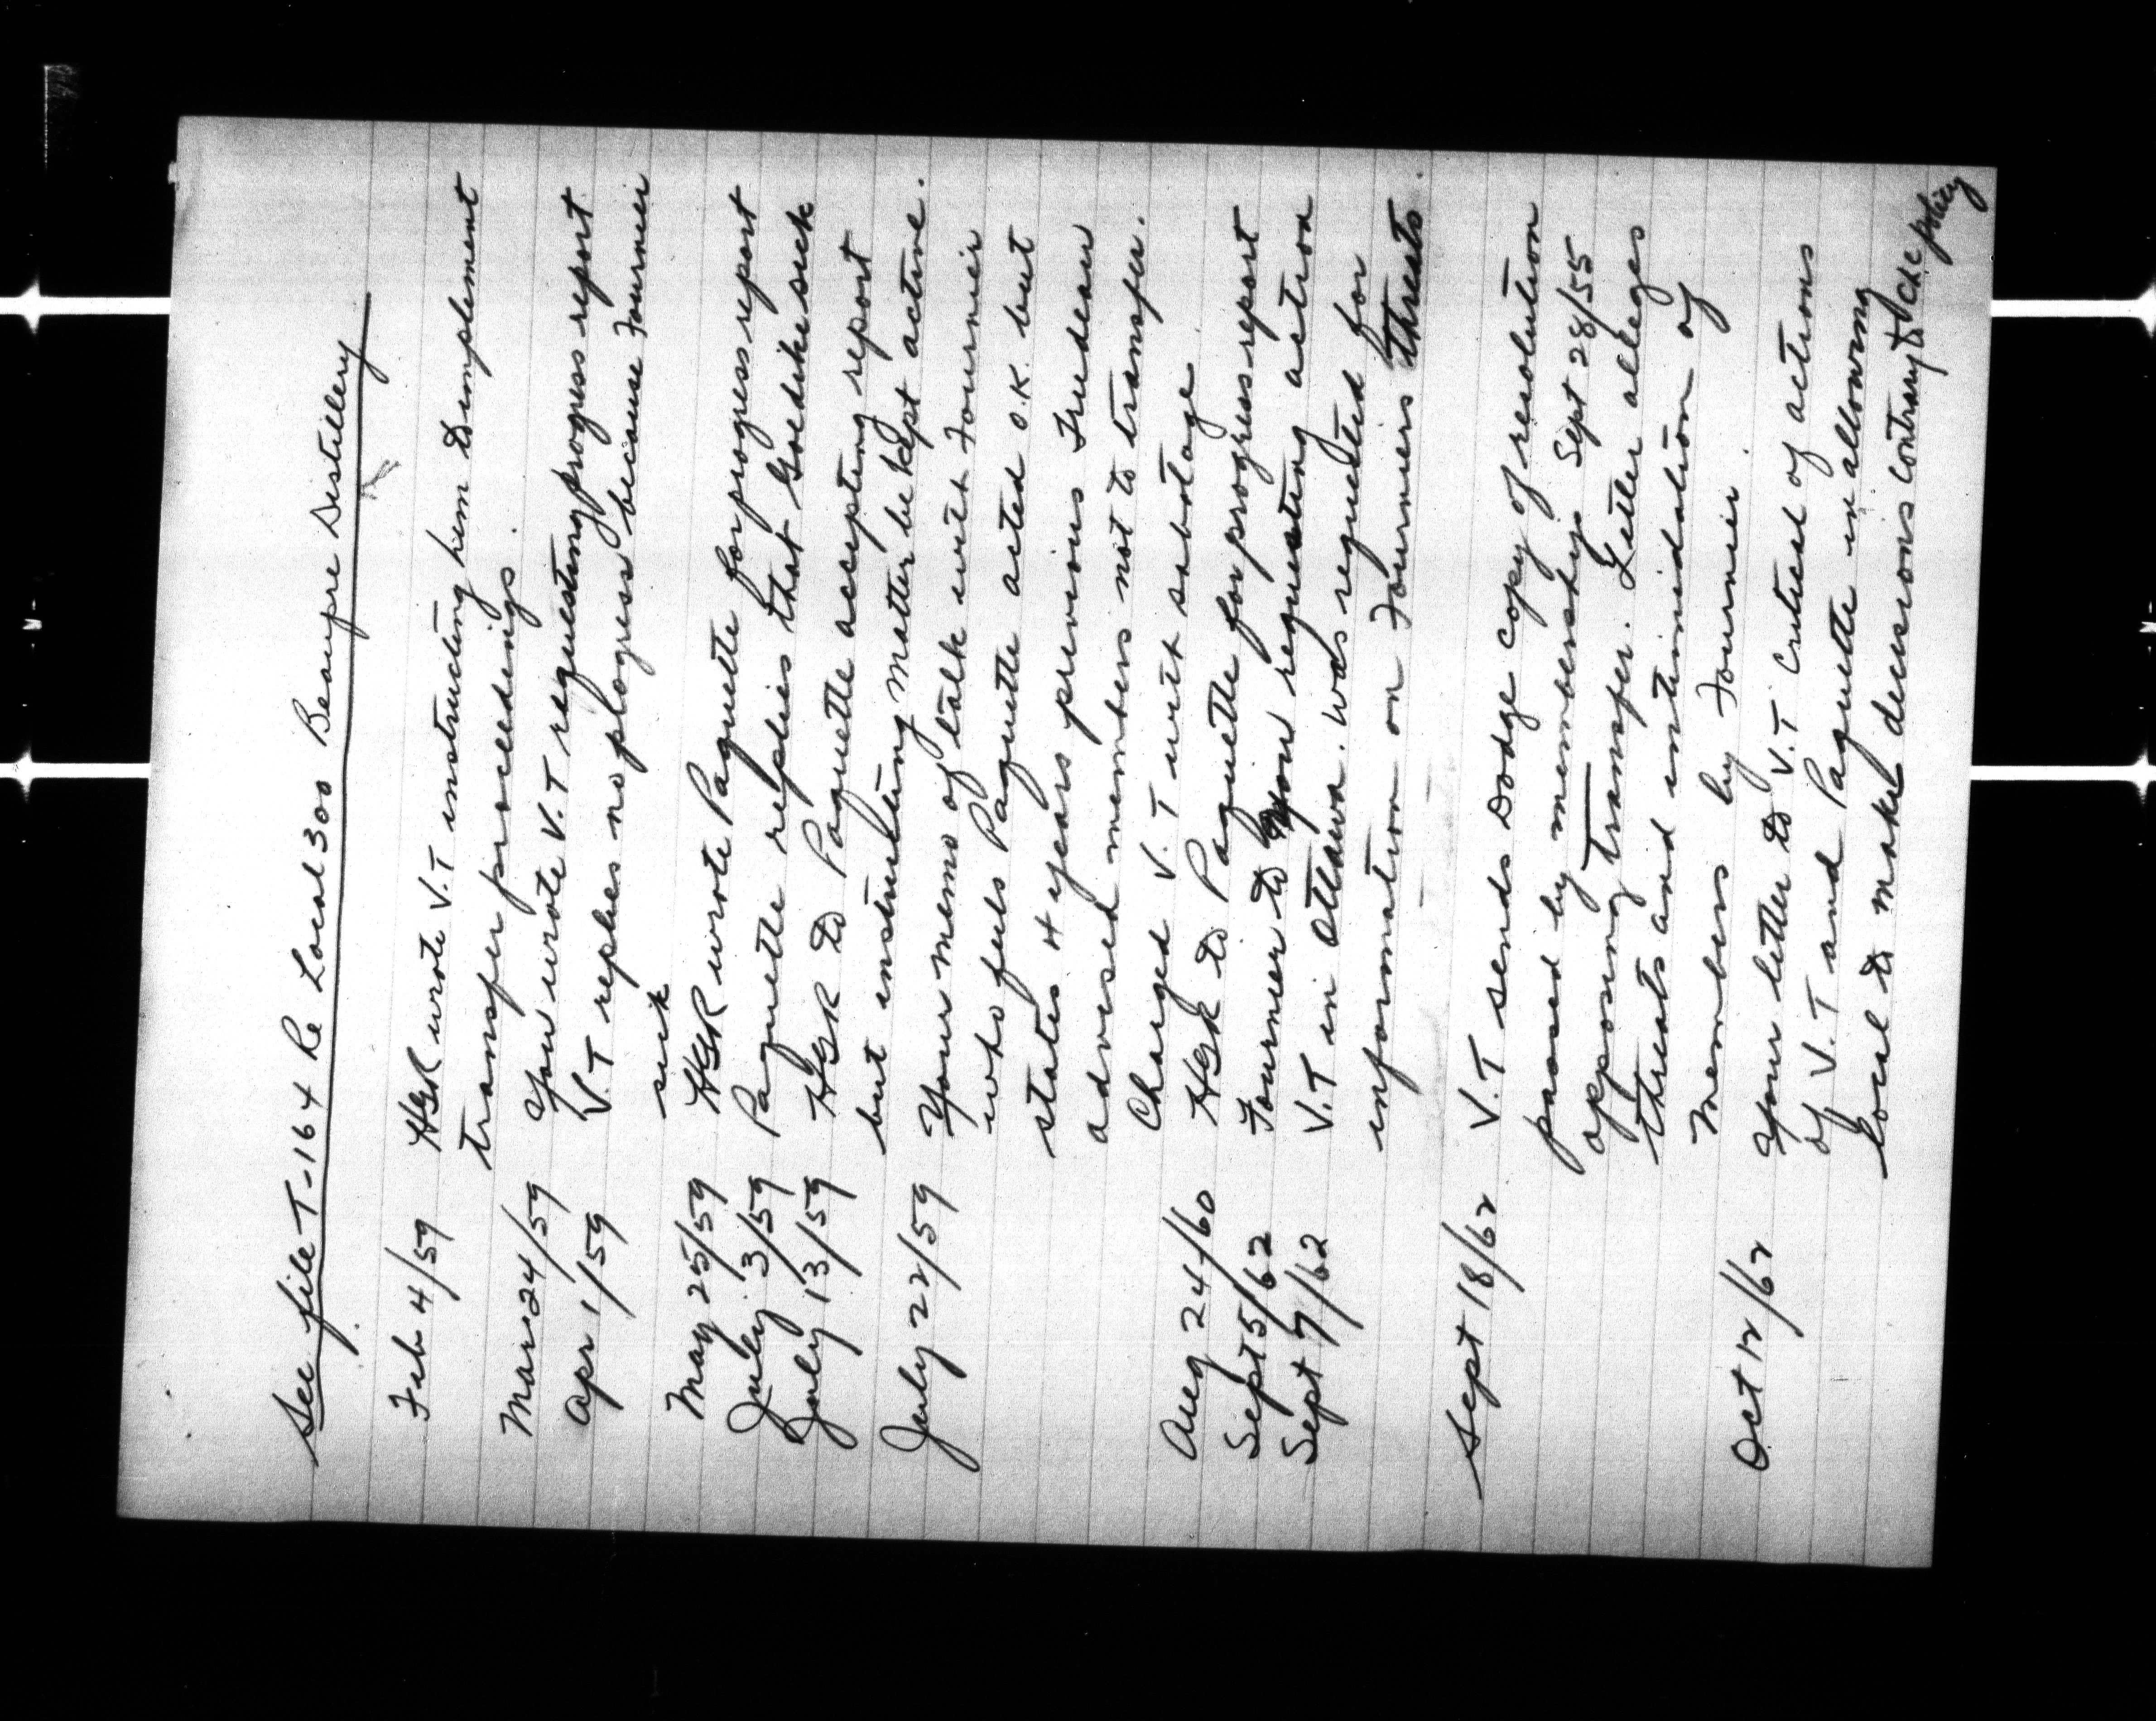 See file T-164 Re Local 300 Beaupre Distillery
Feb 4/59 HGR wrote V.T instructing him to implement
transfer proceedings.
Mar 24/59 You wrote V.T requesting progress report
Apr 1/59 V.T replies no progress because Fournier
sick
May 25/59 HGR wrote Paquette for progress report
July 3/59 Paquette replies that Goedike sick
July 13/59 HGR to Paquette accepting report
but instructing matter be kept active.
July 22/59 Your memo of talk with Fournier
who feels Paquette acted O.K. but
states 4 years previous Trudeau
advised members not to transfer.
Charged V.T with sabotage
Aug 24/60 HGR to Paquette for progress report
Sept 5/62 Fournier to you requesting action
Sept 7/62 V.T in Ottawa. Was requested for
information on Fourniers threats.
Sept 18/62 V.T sends Dodge copy of resolution
passed by membership Sept 28/55
opposing transfer. Letter alleges
threats and intimidation of
members by Fournier.
Oct 12/62 Your letter to V.T critical of actions
of V.T and Paquette in allowing
local to make decisions contrary to CLC policy